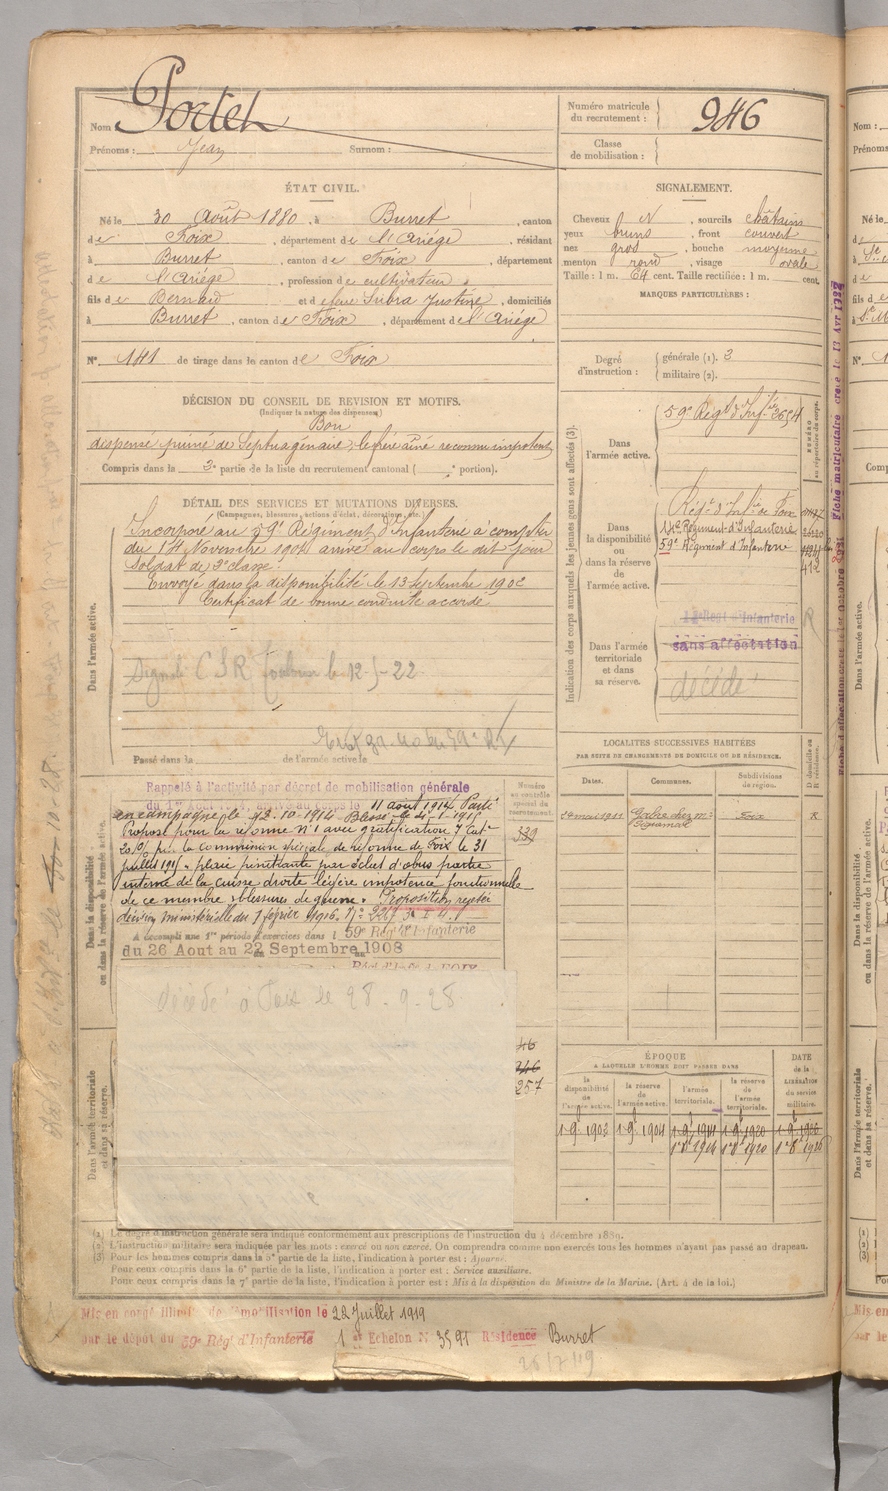 Nom Portet
Prénoms : Jean Surnom :
Numéro matricule du recrutement : 946
Classe de mobilisation :
ÉTAT CIVIL.
Né le 30 Août 1880, à Burret, canton
de Foix, département de l'Ariége, résidant
à Burret, canton de Foix, département
de l'Ariége, profession de cultivateur
fils de Bernard et de feue Subra Justine, domiciliés
à Burret, canton de Foix, département de l'Ariége
N° 141 de tirage dans le canton de Foix
SIGNALEMENT.
Cheveux N, sourcils châtains
yeux bruns, front couvert
nez gros, bouche moyenne
menton rond, visage ovale
Taille : 1 m. 64 cent. Taille rectifiée : 1 m. cent.
MARQUES PARTICULIÈRES :
Degré d'instruction : générale (1). 3
militaire (2).
DÉCISION DU CONSEIL DE REVISION ET MOTIFS.
(Indiquer la nature des dispenses)
Bon
dispensé puiné de Septuagénaire, le frère aîné reconnu impotent
Compris dans la 2e partie de la liste du recrutement cantonal ( e portion).
DÉTAIL DES SERVICES ET MUTATIONS DIVERSES.
(Campagnes, blessures, actions d'éclat, décorations, etc.)
Dans l'armée active.
Incorporé au 59e Régiment d'Infanterie à compter
du 14 Novembre 1901 arrivé au corps le dit jour
Soldat de 2e classe.
Envoyé dans la disponibilité le 13 Septembre 1902
Certificat de bonne conduite accordé
Signalé C S R Toulouse le 12-5-22
Passé dans la de l'armée active le
Indication des corps auxquels les jeunes gens sont affectés (3).
NUMÉRO au répertoire du corps.
Dans l'armée active.
59e Régt d'Infie 2654
Dans la disponibilité ou dans la réserve de l'armée active.
Régt d'Infie de Foix
14e Régiment d'Infanterie
59e Régiment d'Infanterie
412
Dans l'armée territoriale et dans sa réserve.
Régt d'Infanterie
sans affectation
décédé
R
LOCALITES SUCCESSIVES HABITÉES
PAR SUITE DE CHANGEMENTS DE DOMICILE OU DE RÉSIDENCE.
Dates. Communes. Subdivisions de région. D domicile ou R résidence.
mai 1911 chez Mr Foix R
Dans la disponibilité ou dans la réserve de l'armée active.
Numéro au contrôle spécial du recrutement.
339
Rappelé à l'activité par décret de mobilisation générale
du 1er Août 1914, arrivé au corps le 11 août 1914. Parti
en campagne le 12.10-1914 Blessé le 4-1-1915
Proposé pour la réforme n° 1 avec gratification 7e Catie
20 % par la commission spéciale de réforme de Foix le 31
juillet 1915. plaie pénétrante par éclat d'obus partie
interne de la cuisse droite légère impotence fonctionnelle
de ce membre, blessures de guerre. Proposition rejetée
décision ministérielle du 7 février 1916.
A accompli une 1re période d'exercices dans l 59e Régt d'Infanterie
du 26 Aout au 22 Septembre 1908
décédé à Foix le 28-9-28
Dans l'armée territoriale et dans sa réserve.
46
346
257
ÉPOQUE
A LAQUELLE L'HOMME DOIT PASSER DANS
DATE de la LIBÉRATION du service militaire.
la disponibilité de l'armée active. la réserve de l'armée active. l'armée territoriale. la réserve de l'armée territoriale.
1 9e 1902 1 9e 1904 1 9e 1914 1 9e 1920 1 9e 1926
1er 8e 1914 1er 8e 1920 1er 8e 1926
(1) Le degré d'instruction générale sera indiqué conformément aux prescriptions de l'instruction du 4 décembre 1889.
(2) L'instruction militaire sera indiquée par les mots : exercé ou non exercé. On comprendra comme non exercés tous les hommes n'ayant pas passé au drapeau.
(3) Pour les hommes compris dans la 5e partie de la liste, l'indication à porter est : Ajourné
Pour ceux compris dans la 6e partie de la liste, l'indication à porter est : Service auxiliaire.
Pour ceux compris dans la 7e partie de la liste, l'indication à porter est : Mis à la disposition du Ministre de la Marine. (Art. 4 de la loi.)
Mis en congé illimité de démobilisation le 22 Juillet 1919
par le dépôt du 59e Régt d'Infanterie 1er Echelon N° 3591 Résidence Burret
26/7/19